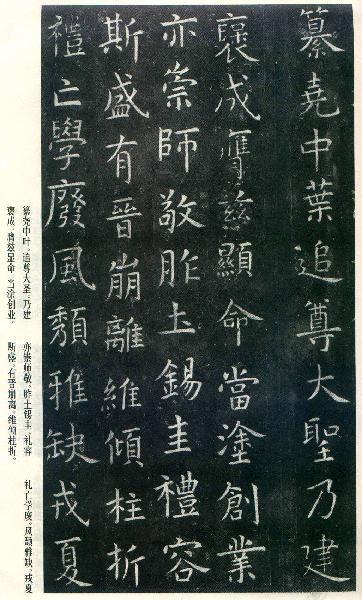 纂堯中葉追尊大聖乃建
襃成膺玆顯命當塗創業
亦崇師敬胙土錫圭禮容
斯盛有晉崩離維傾柱折
禮亡學廢風頽雅缺戎夏
纂尧中叶，追尊大圣，乃建
褒成，膺兹显命，当涂创业，
亦崇师敬，胙土锡圭，礼容
斯盛，有晋崩离，维倾柱折。
礼亡学废，风颓雅缺，戎夏